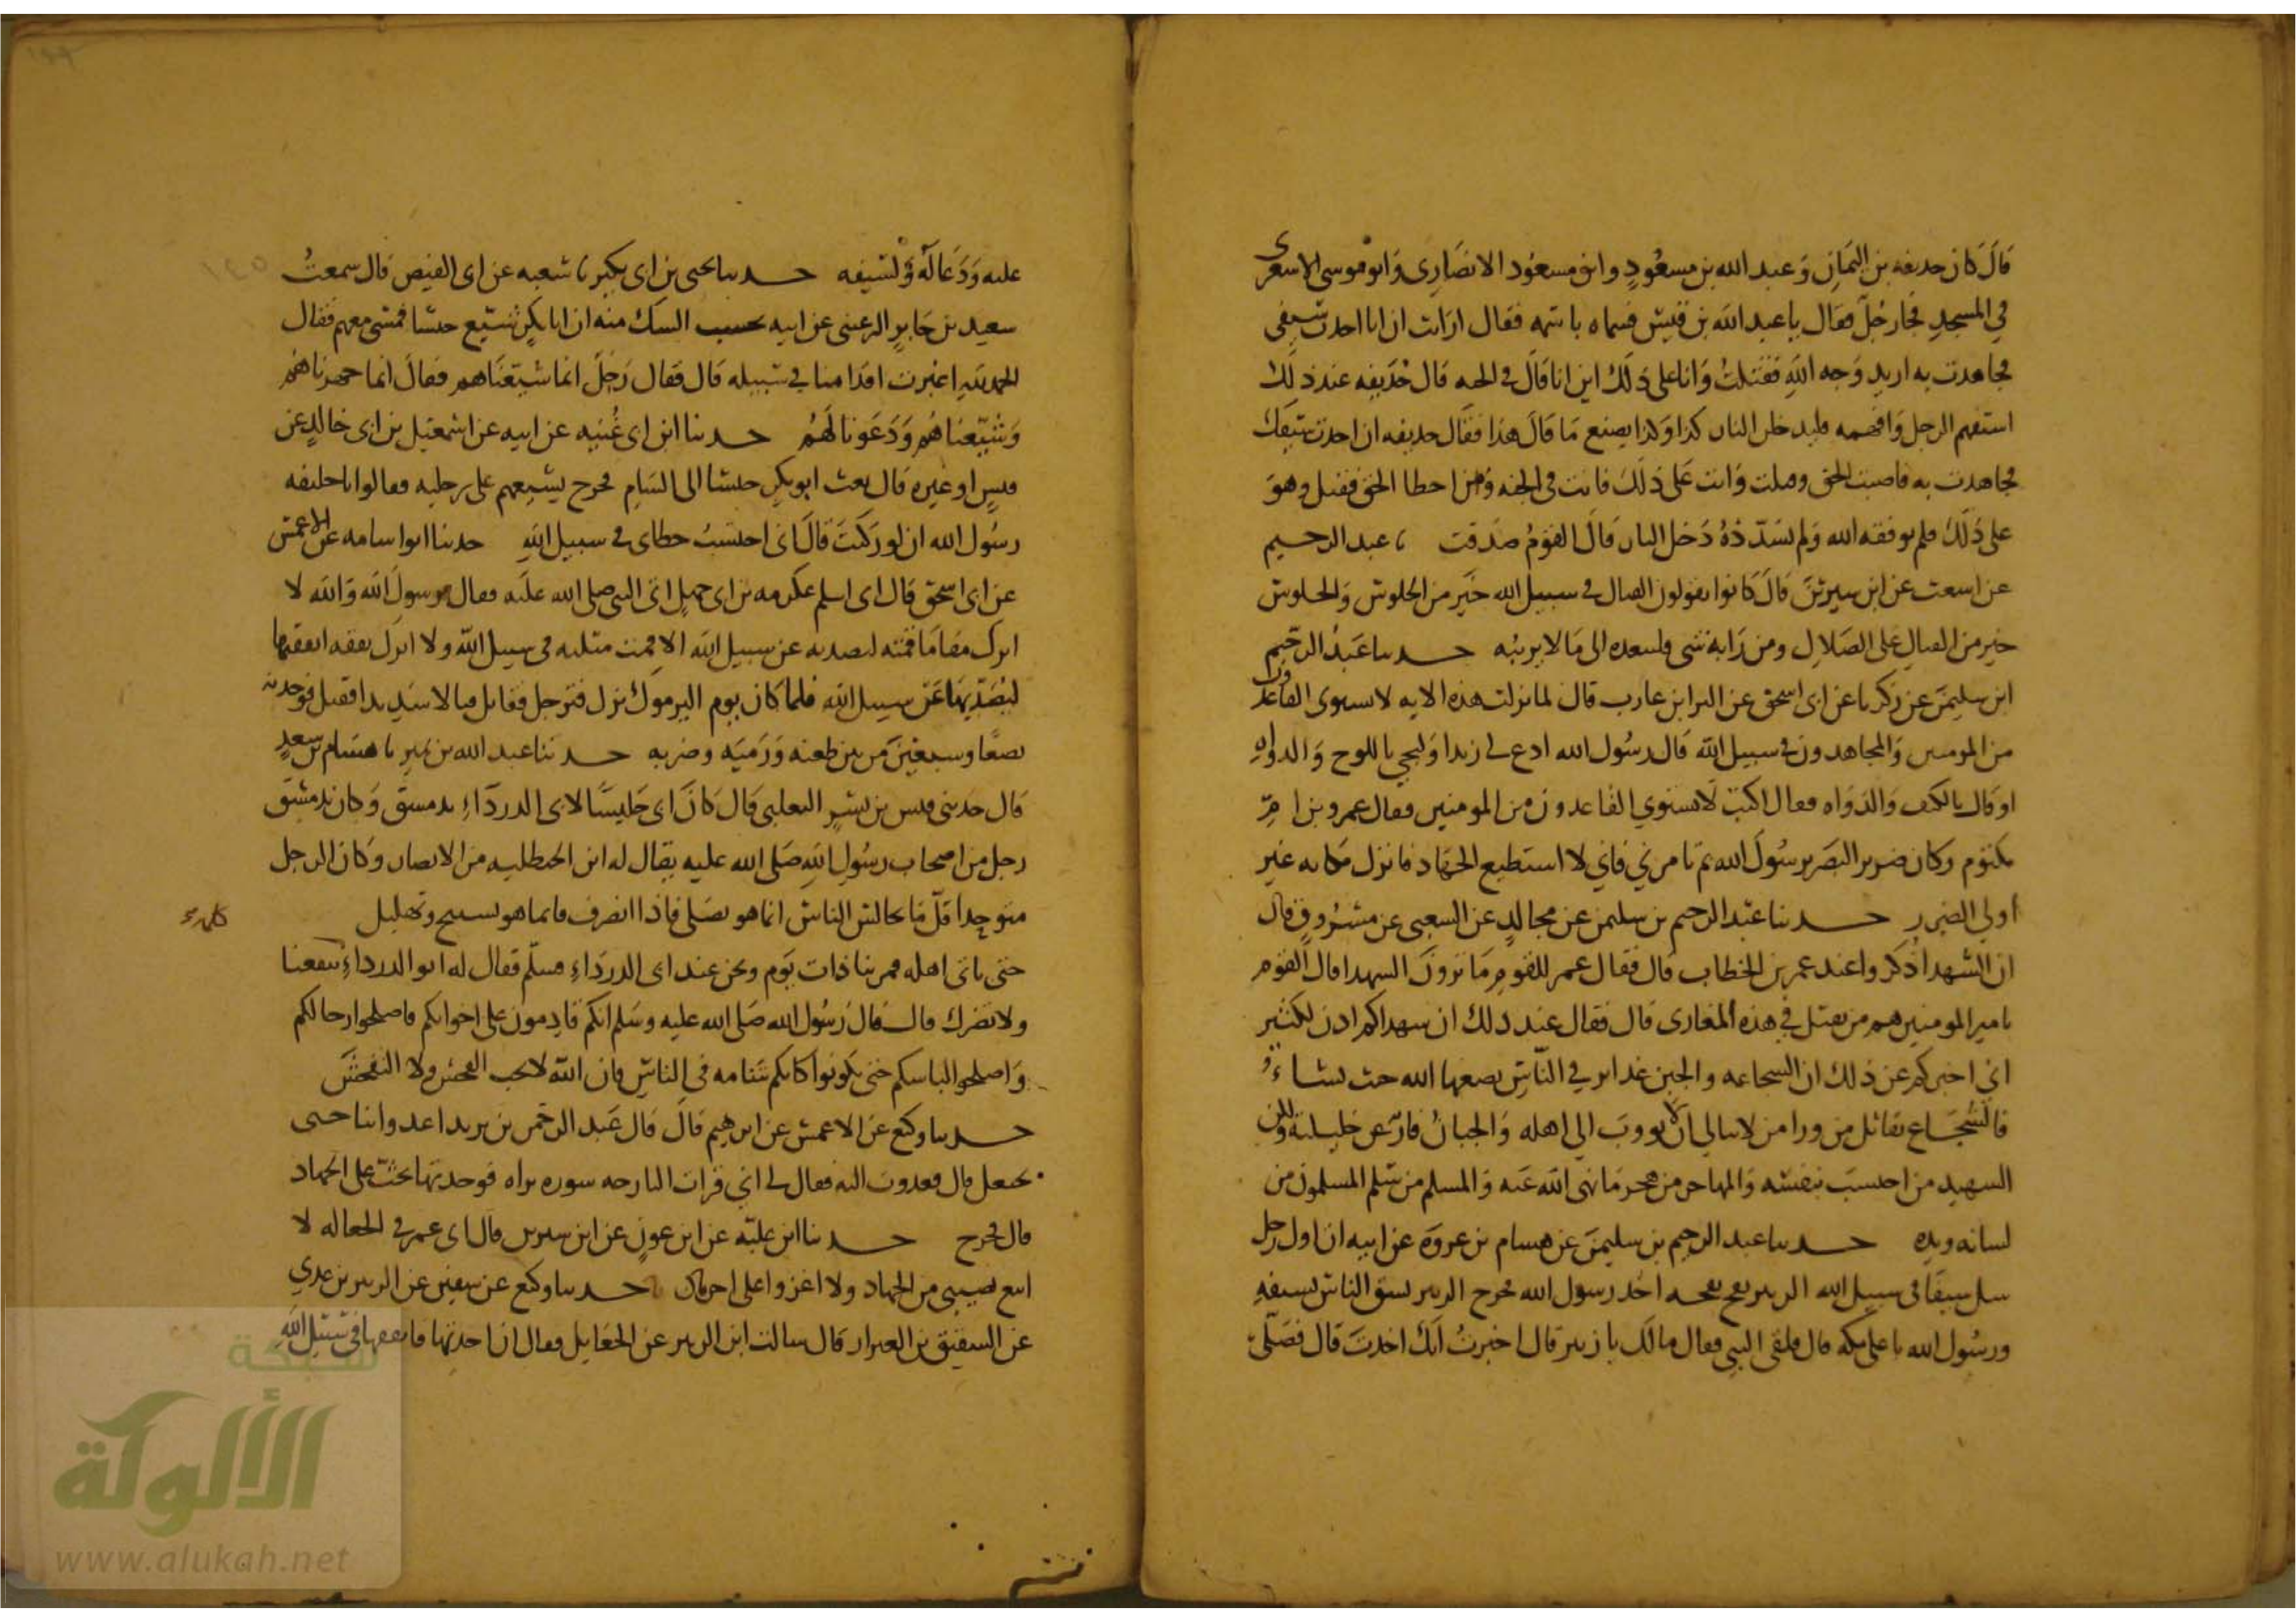 قال كان حذيفة بن اليمان وعبد الله بن مسعود وابو مسعود الانصارى وابو موسى الاشعرى
في المسجد فجا رجل فقال يا عبد الله بن قيس فسماه باسمه فقال ارايت ان انا اخذت سيفي
فجاهدت به اريد وجه الله فقتلت وانا على ذلك اين انا قال في الجنه قال حذيفه عند ذلك
استفهم الرجل وافهمه فليدخلن النار كذا وكذا يصنع ما قال هذا فقال حذيفه ان اخذت سيفك
فجاهدت به فاصبت الحق وقتلت وانت على ذلك فانت في الجنه ومن اخطا الحق فقتل وهو
على ذلك فلم يوفقه الله ولم يسدده دخل النار قال القوم صدقت نا عبد الرحيم
عن اشعث عن ابن سيرين قال كانوا يقولون القتال في سبيل الله خير من الجلوس والجلوس
خير من القتال على الضلال ومن رابه شي فليتعده الى ما لا يريبه حدثنا عبد الرحيم
ابن سليمن عن زكريا عن ابى اسحق عن البرا بن عازب قال لما نزلت هذه الايه لا يستوى القاعدون
من المومنين والمجاهدون في سبيل الله قال رسول الله ادع لي زيدا وليجي باللوح والدواه
او قال بالكتف والدواه فقال اكتب لا يستوي القاعدون من المومنين فقال عمرو بن ام
مكتوم وكان ضرير البصر يرسول الله بم تامرني فاني لا استطيع الجهاد فانزل مكانه غير
اولي الضرر حدثنا عبد الرحيم بن سليمن عن مجالد عن الشعبى عن مسروق قال
ان الشهدا ذكروا عند عمر بن الخطاب قال فقال عمر للقوم ما ترون الشهدا قال القوم
يامير المومنين هم من يقتل في هذه المغازى قال فقال عند ذلك ان شهداكم اذن لكثير
انى اخبركم عن ذلك ان الشجاعه والجبن غرايز في الناس يضعها الله حيث يشاء
فالشجاع يقاتل من ورا من لا يبالي ان لا يووب الى اهله والجبان فار عن خليلته ولكن
الشهيد من احتسب بنفسه والمهاجر من هجر ما نهى الله عنه والمسلم من سلم المسلمون من
لسانه ويده حدثنا عبد الرحيم بن سليمن عن هشام بن عروة عن ابيه ان اول رجل
سل سيفا في سبيل الله الزبير نفح نفحه اخذ رسول الله فخرج الزبير يشق الناس بسيفه
ورسول الله باعلى مكه قال فلقى النبي فقال مالك يا زبير قال اخبرت انك اخذت قال فصلى
عليه ودعا له ولسيفه حدثنا يحيى بن ابى بكير نا شعبه عن ابى الفيض قال سمعت
سعيد بن جابر الرعينى عن ابيه يحسب الشك منه ان ابا بكر شيع جيشا فمشى معهم فقال
الحمد لله اغبرت اقدامنا في سبيله قال فقال رجل انما شيعناهم فقال انما جهزناهم
وشيعناهم ودعونا لهم حدثنا ابن ابى غنيه عن ابيه عن اسمعيل بن ابى خالد عن
قيس او غيره قال بعث ابو بكر جيشا الى الشام فخرج يشيعهم على رجليه فقالوا يا خليفه
رسول الله ان لو ركبت قال انى احتسب خطاى في سبيل الله حدثنا ابو اسامه عن الاعمش
عن ابى اسحق قال اى اسلم عكرمه بن ابى جهل اتى النبى صلى الله عليه فقال يرسول الله والله لا
اترك مقاما قمته ليصد به عن سبيل الله الا قمت مثليه في سبيل الله ولا اترك نفقه انفقتها
ليصد بها عن سبيل الله فلما كان يوم اليرموك نزل فترجل فقاتل قتالا شديدا فقتل فوجد به
بضعا وسبعين من بين طعنه ورميه وضربه حدثنا عبد الله بن نمير نا هشام بن سعد
قال حدثنى قيس بن بشر التغلبى قال كان ابى جليسا لابى الدرداء بدمشق وكان بدمشق
رجل من اصحاب رسول الله صلى الله عليه يقال له ابن الحنظليه من الانصار وكان الرجل
متوحدا قل ما يجالس الناس انما هو يصلى فاذا انصرف فانما هو تسبيح وتهليل
حتى ياتى اهله فمر بنا ذات يوم ونحن عند ابى الدرداء فسلم فقال له ابو الدرداء كلمه تنفعنا
ولا تضرك قال قال رسول الله صلى الله عليه وسلم انكم قادمون على اخوانكم فاصلحوا رحالكم
واصلحوا لباسكم حتى تكونوا كانكم شامه في الناس فان الله لا يحب الفحش ولا التفحش
حدثنا وكيع عن الاعمش عن ابرهيم قال قال عبد الرحمن بن يزيد اغد وابنا حتى
نجعل قال فغدوت اليه فقال لي اني قرات البارحه سوره براه فوجدتها تحث على الجهاد
قال فخرج حدثنا ابن عليه عن ابن عون عن ابن سيرين قال ابى عمر في الجعاله لا
ابيع نصيبى من الجهاد ولا اغزوا على اجر حدثنا وكيع عن سفين عن الزبير بن عدي
عن الشقيق بن العيزار قال سالت ابن الزبير عن الجعايل فقال ان اخذتها فانفقها في سبيل الله
شبكة
الألوكة
www.alukah.net